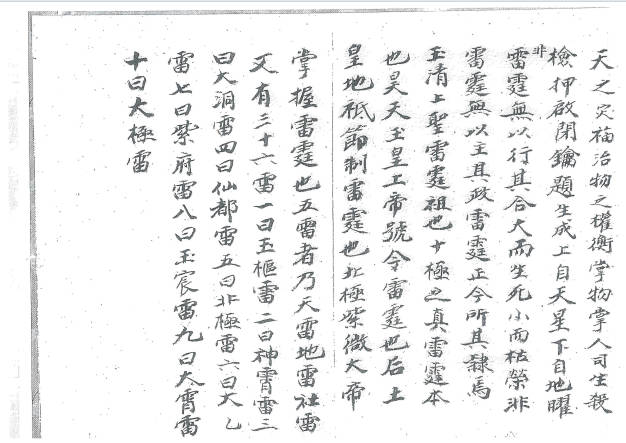 天之災福治物之權衡掌物掌人司生殺
檢押啟閉鑰題生成上自天星下自地曜非
雷霆無以行其合大而生死小而枯榮非
雷霆無以主其政雷霆正令所其隸焉
玉清上聖雷霆祖也十極至真雷霆本
也昊天玉皇上帝號令雷霆也后土
皇地祇節制雷霆也北極紫微大帝
掌握雷霆也五雷者乃天雷地雷社雷
又有三十六雷一曰玉樞雷二曰神霄雷三
曰大洞雷四曰仙都雷五曰非極雷六曰大乙
雷七曰紫府雷八曰玉宸雷九曰太霄雷
十曰太極雷